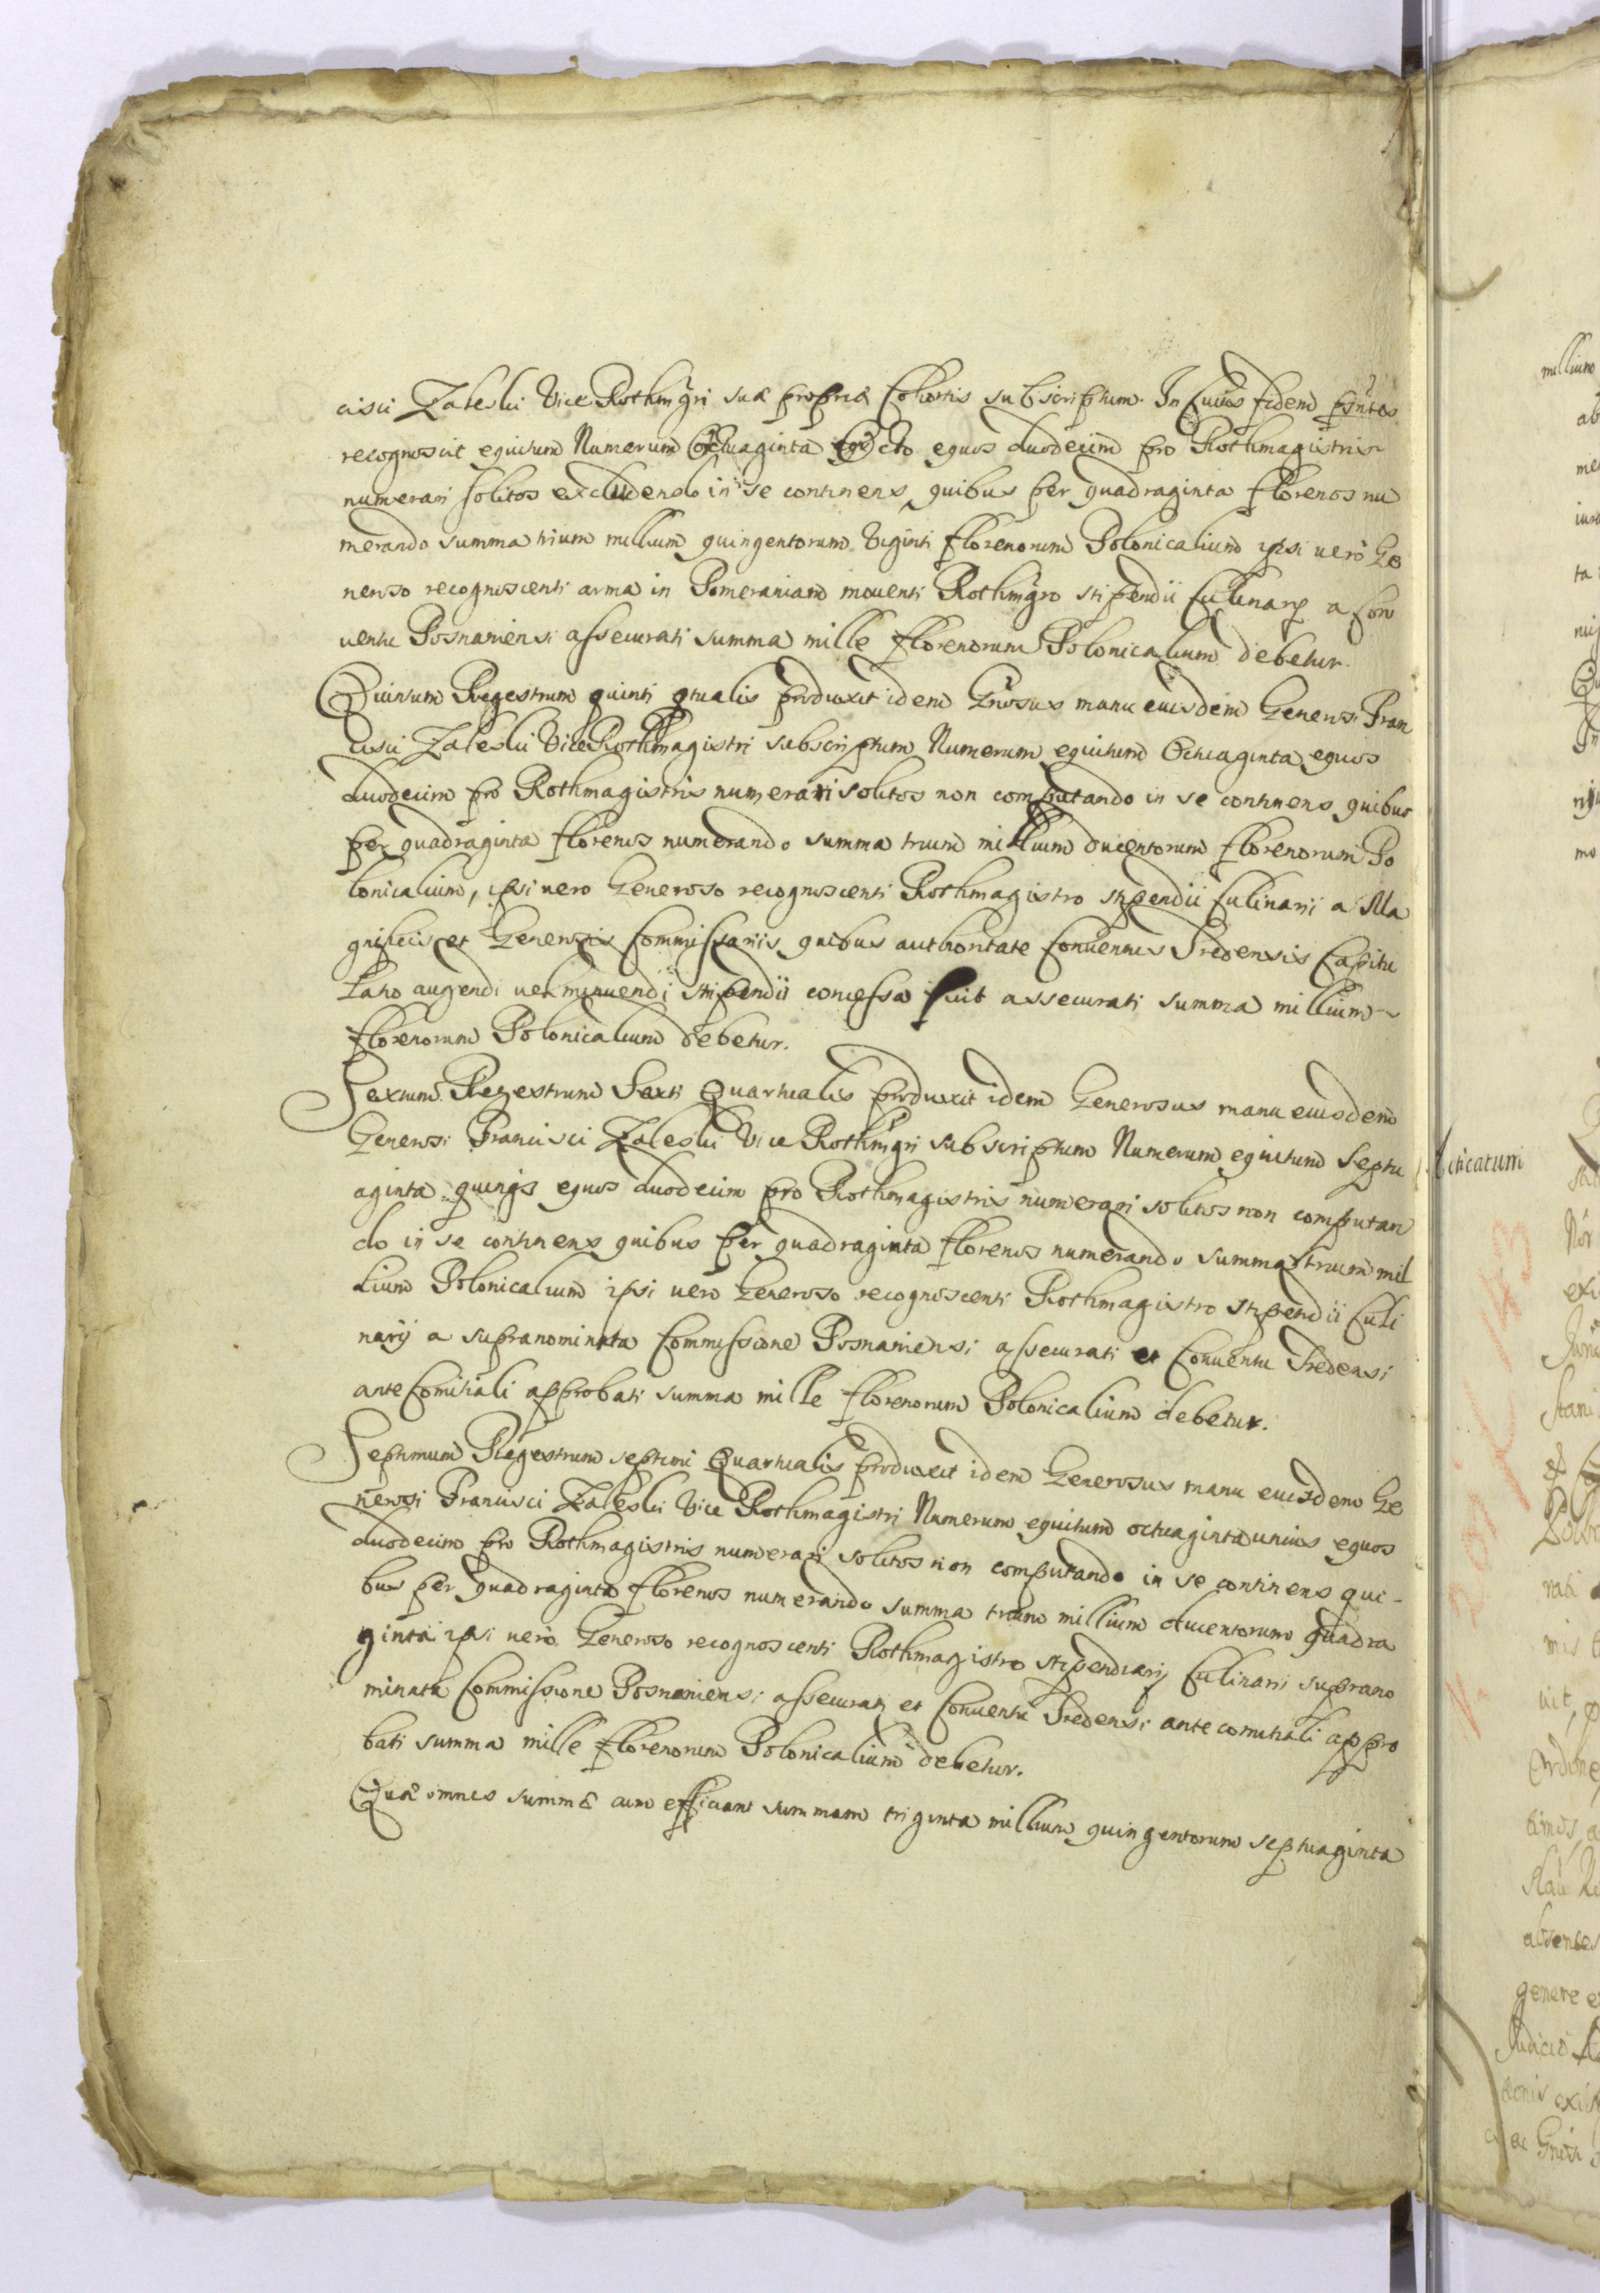 cisci Zaleski Vice Rothmgri suæ propriæ Cohortis subscriptum. In Cuius fidem pñtes
recognoscit equitum Numerum Octuaginta Octo equos duodecim pro Rothmagistris
numerari solitos excludendo in se continens quibus per quadraginta florenos nu
merando summa trium millium quingentorum Viginti florenorum Polonicalium ipsi vero Ge
neroso recognoscenti arma in Pomeraniam moventi Rothmgro stipendii Culinarij a Con
ventu Posnaniensi assecurati summa mille florenorum Polonicalium debetur.
Quintum Regestrum quinti qrtualis produxit idem Gñosus manu eiusdem Generosi Fran
cisci Zaleskii Vice Rothmagistri subscriptum Numerum equitum Octuaginta equos
duodecim pro Rothmagistris numerari solitos non computando in se continens quibus
per quadraginta florenos numerando summa trium millium ducentorum florenorum Po
lonicalium, ipsi vero Generoso recognoscenti Rothmagistro stipendii Culinarij a Ma
gnificis et Generosis Commissarijs quibus authoritate Conventus Sredensis Capitu
latio augendi vel minuendi stipendii concessa fuit assecurati summa millium
florenorum Polonicalium debetur.
Sextum Regestrum Sexti Quartualis produxit idem Generosus manu eiusdem
Generosi Francisci Zaleski Vice Rothmgri subscriptum Numerum equitum Septu
aginta quinqs equos duodecim pro Rothmagistris numerari solitos non computan
do in se continens quibus per quadraginta florenos numerando summa trium mil
lium Polonicalium ipsi vero Generoso recognoscenti Rothmagistro stipendii Culi
narij a supranominata Commissione Posnaniensi assecurati et Conventu Sredensi
ante Comitiali approbati summa mille florenorum Polonicalium debetur.
Septimum Regestrum septimi Quartualis produxit idem Generosus manu eiusdem Ge
nerosi Francisci Zaleskii Vice Rothmagistri Numerum equitum octuaginta unius equos
duodecim pro Rothmagistris numerari solitos non computando in se continens qui-
bus per quadraginta florenos numerando summa trium millium ducentorum quadra
ginta ipsi vero Generoso recognoscenti Rothmagistro stipendiarij Culinarij suprano
minata Commissione Posnaniensi assecurati et Conventu Sredensi ante comitiali appro
bati summa mille florenorum Polonicalium debetur.
Quæ omnes summæ cum efficiant summam triginta millium quingentorum septuaginta